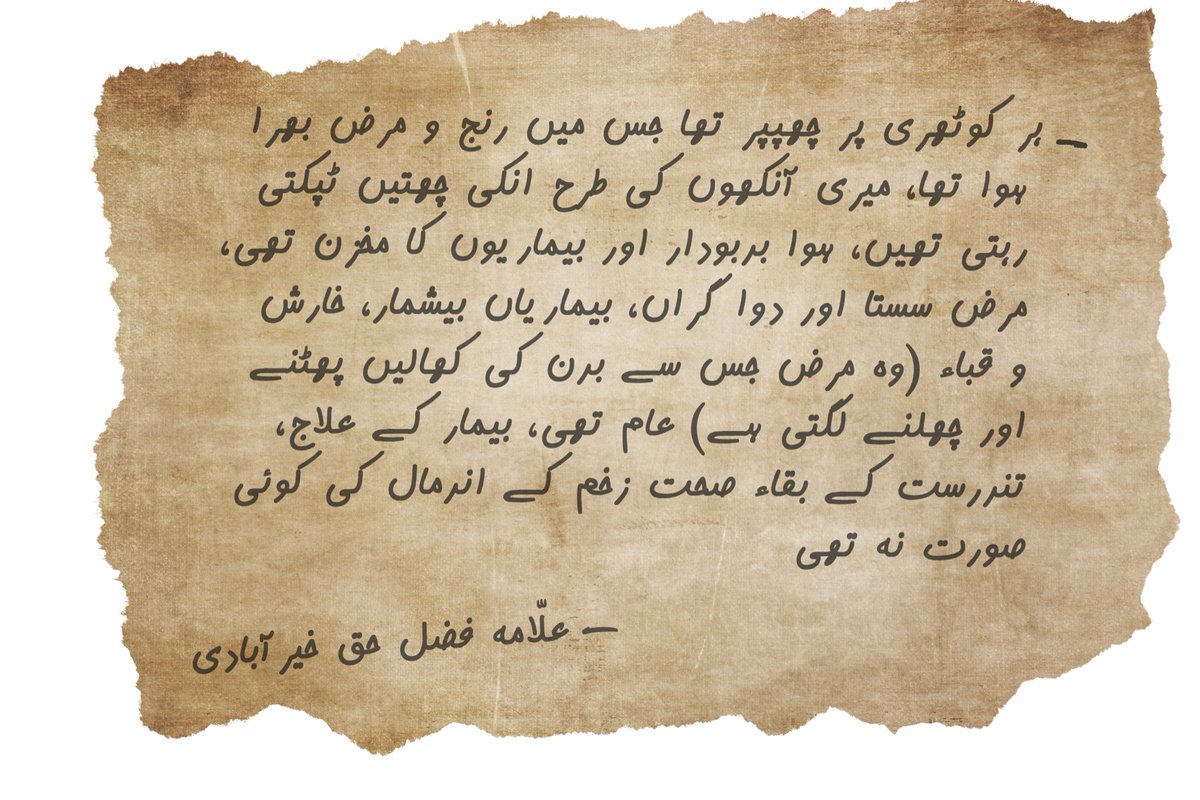 — ہر کوٹھری پر چھپپر تھا جس میں رنج و مرض بھرا
ہوا تھا، میری آنکھوں کی طرح انکی چھتیں ٹپکتی
رہتی تھیں، ہوا بربودار اور بیماریوں کا مخزن تھی،
مرض سستا اور دوا گراں، بیماریاں بیشمار، خارش
و قباء (وہ مرض جس سے برن کی کھالیں پھٹنے
اور چھلنے لگتی ہے) عام تھی، بیمار کے علاج،
تنررست کے بقاء صحت زخم کے انرمال کی کوئی
صورت نہ تھی
— علّامہ فضل حق خیرآبادی